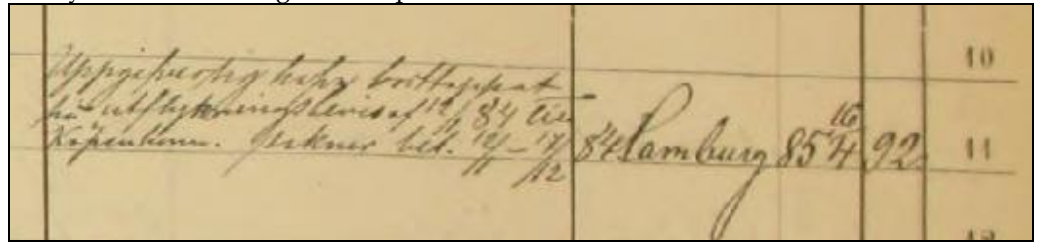 10
Uppgifver sig hafva borttappat
sin utflyttningsbevis af 12/11 84 till
Köpenhamn. Saknar bet. 12/11 - 17/12 84 Hamburg 85 16/4 92 11